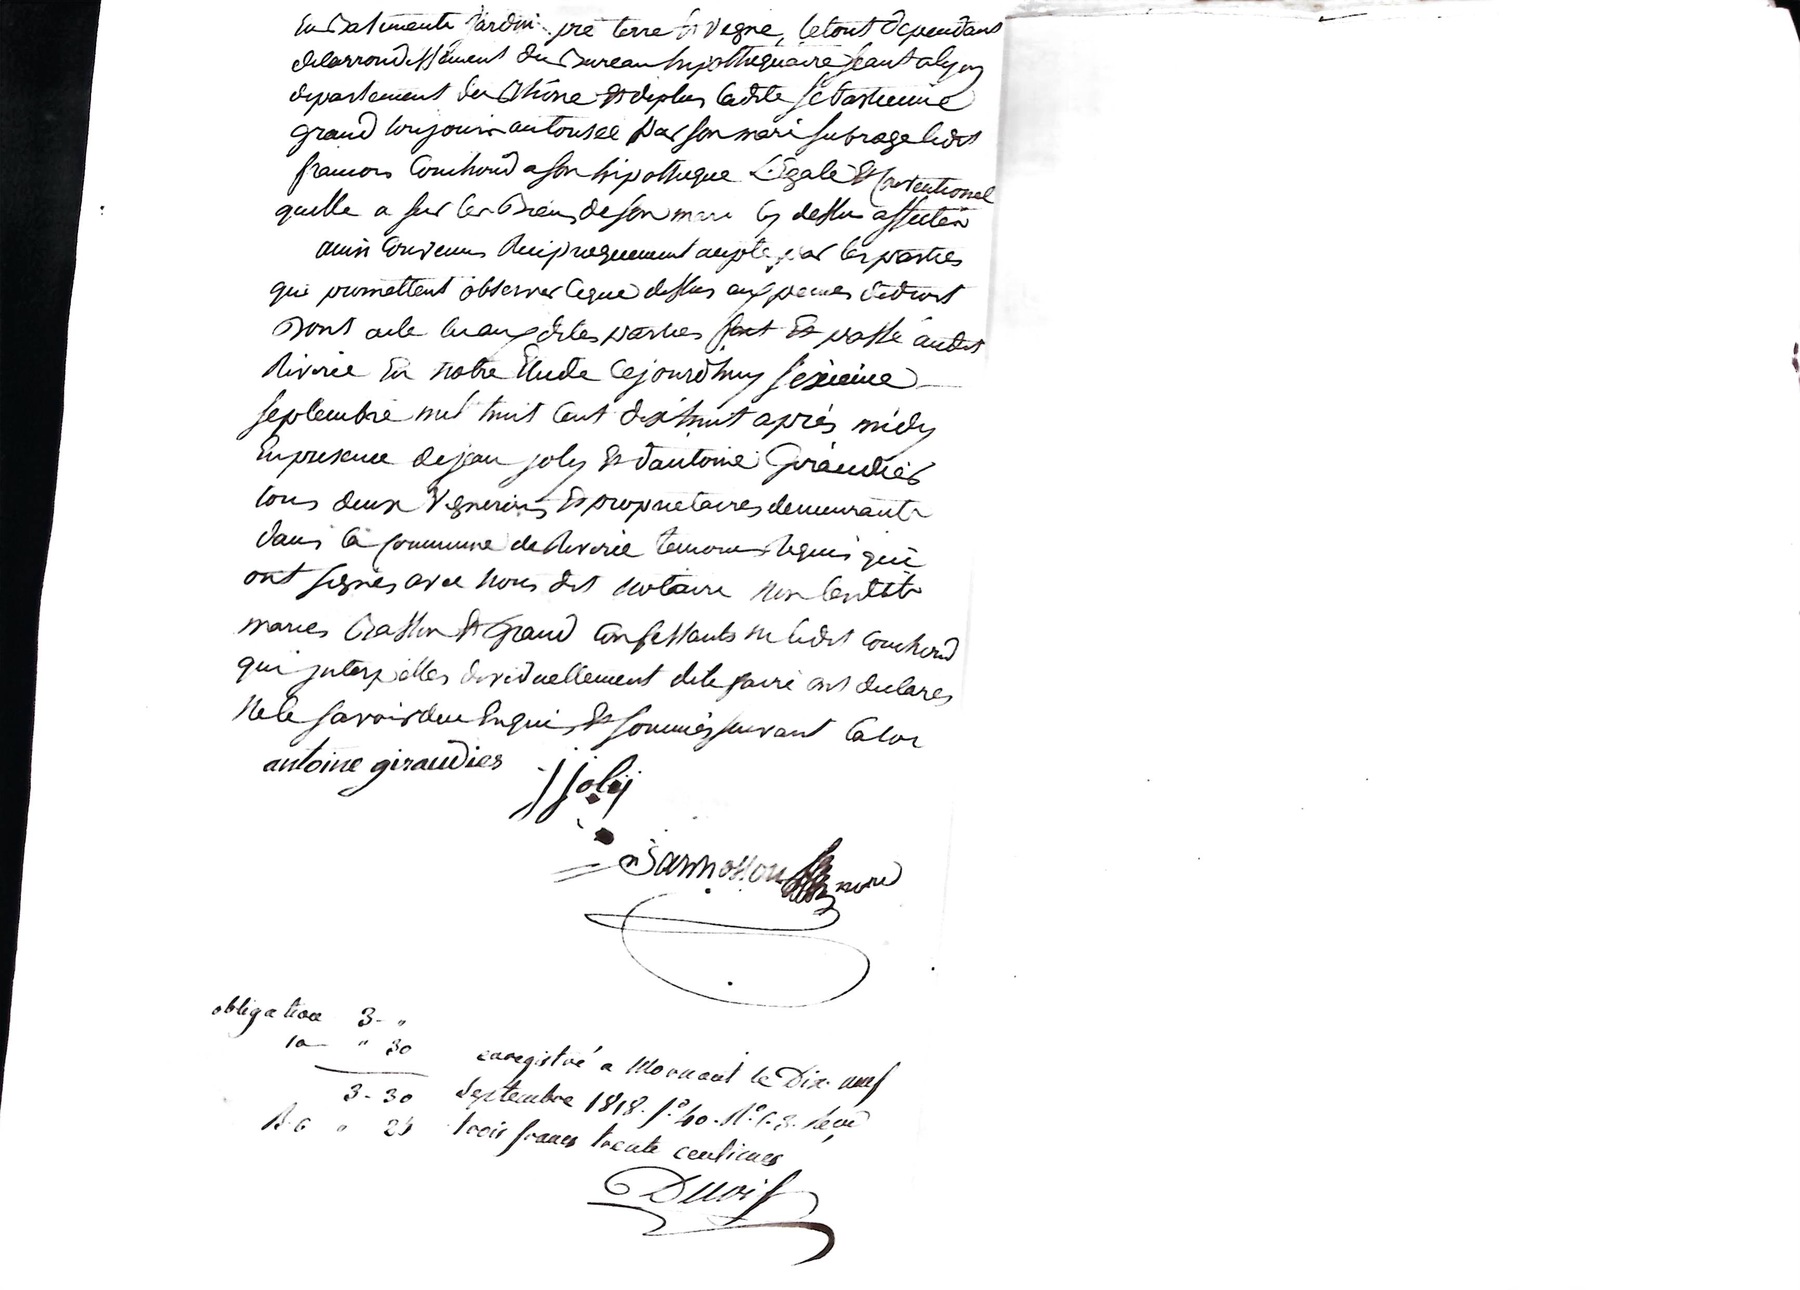 En Batiments Jardin pré terre & Vigne, le tout dependant
de larrondissement du Bureau hipothequaire seant a lyon
departement du Rhône & de plus ladite
grand toujours autorisée par son mari subroge ledit
francois Couchoud a son hipotheque Légale & Conventionel
quelle a sur les Biens de son mari cy dessus affectés
ainsi convenu Reciproquement accepté par les parties
qui promettent observer ceque dessus aux peines de droit
Dont acte lu aux dites parties fait & passé audit
Riverie En notre Etude Cejourdhuy seizieme
septembre mil huit Cent dixhuit après midy
En presence de jean joly & dantoine Giraudier
tous deux Vignerons & proprietaires demeurants
dans la Commune de Riverie temoins Requis qui
ont signés avec Nous dit notaire Non lesdits
maries & Grand Confessants ni ledit Couchoud
qui jnterpellés dividuellement de le faire ont declarés
Ne le savoir de ce Enquis & sommés suivant la loi
antoine giraudier
j joly
obligation 3- "
10 " 30
enregistré a Mornant le Dix neuf
3-30 septembre 1818. f.° 40. R.° C. 8. Recu
" 25 trois francs trente centimes